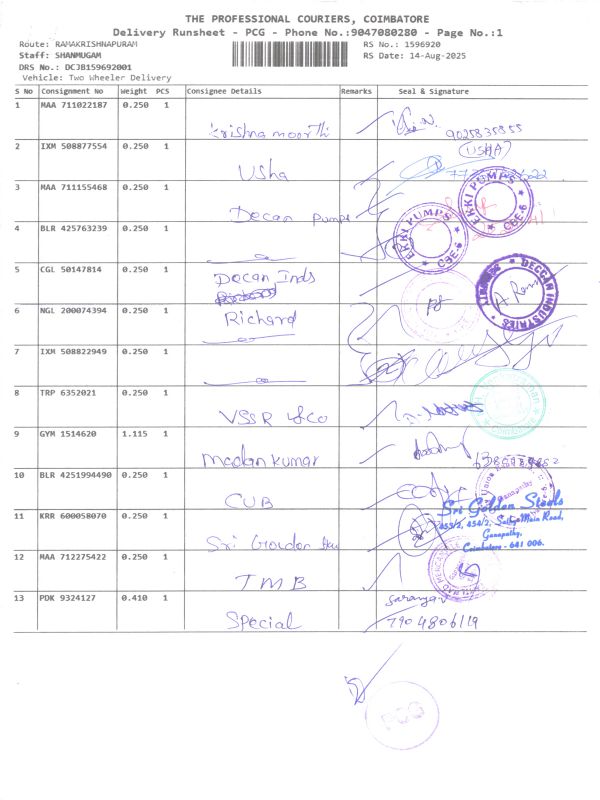 THE PROFESSIONAL COURIERS, COIMBATORE
Delivery Runsheet - PCG - Phone No.:9047080280 - Page No.:1
Route: RAMAKRISHNAPURAM
RS No.: 1596920
Staff: SHANMUGAM
RS Date: 14-Aug-2025
DRS No.: DCJB159692001
Vehicle: Two Wheeler Delivery
S No Consignment No Weight PCS Consignee Details Remarks Seal & Signature
1 MAA 711022187 0.250 1
Krishna moorthi 9025835855
2 IXM 508877554 0.250 1 (USHA)
Usha
3 MAA 711155468 0.250 1
Decan Pumps EKKI PUMPS CBE-6
4 BLR 425763239 0.250 1 EKKI PUMPS CBE-6
5 CGL 50147814 0.250 1 Decan Inds DECCAN INDUSTRIES
6 NGL 200074394 0.250 1 Richard
7 IXM 508822949 0.250 1
8 TRP 6352021 0.250 1
VSSR & Co
9 GYM 1514620 1.115 1
Madan kumar
10 BLR 4251994490 0.250 1
CUB
Sri Golden Steels
453/2, 454/2, Sathy Main Road,
Ganapathy,
Coimbatore - 641 006.
11 KRR 600058070 0.250 1
Sri
12 MAA 712275422 0.250 1
TMB
13 PDK 9324127 0.410 1 Saranya.v
Special 7904806119
PCG